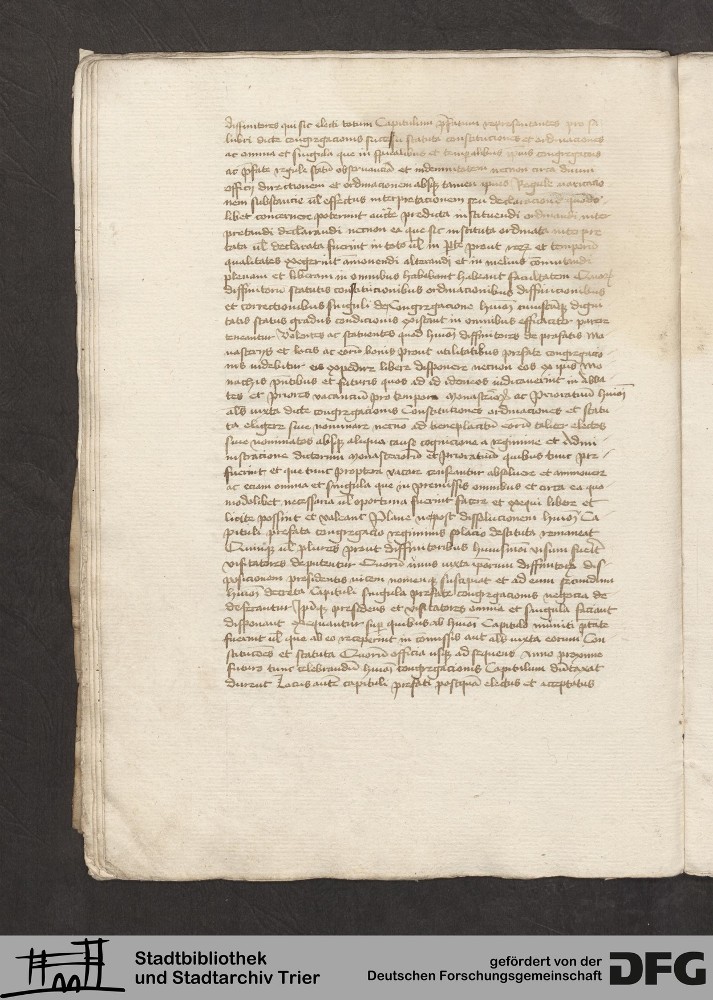 diffinitores qui sic electi totum Capitulum representantes pro sa
lubri dicte congregacionis successu statuta constituciones et ordinaciones
ac omnia et singula que in spiritualibus et temporalibus ipsius congregacionis
ac prefate regule statum observanciam et indempnitatem necnon circa divini
officii directionem et ordinacionem absque tamen ipsius Regule mortificacio
nem substancie vel effectus interpretacionem seu declaracionem quomodo
libet concernere poterunt aucte predicta instituendi ordinandi inter
pretandi declarandi necnon ea que sic instituta ordinata interpre
tata vel declarata fuerint in toto vel in parte prout rerum et temporum
qualitates exegerint ammovendi alterandi et in melius commutandi
plenam et liberam in omnibus habebant habeant facultatem Quorum
diffinitorum statutis constitucionibus ordinacionibus diffinicionibus
et correctionibus singuli de Congregacione huiusmodi cuiuscumque digni
tatis status gradus condicionis existant in omnibus efficaciter parere
teneantur Volentes ac statuentes quod huiusmodi diffinitores de prefatis Mo
nasteriis et locis ac eorum bonis prout utilitatibus prefate congregacio
nis videbitur eis expedire libere disponere necnon eos ex ipsis Mo
nachis presentibus et futuris quos ad id idoneos iudicaverint in abba
tes et Priores vacancium pro tempore Monasteriorum ac Prioratuum huiusmodi
alias iuxta dicte congregacionis Constituciones ordinaciones et statu
ta eligere sive nominare necnon ad beneplacitum eorum taliter electos
sive nominatos absque aliqua cause cognicione a regimine et Admi
nistracione dictorum Monasteriorum et Prioratuum quibus tunc pre
fuerint et que tunc propterea vacare censeantur absolvere et ammovere
ac eciam omnia et singula que in premissis omnibus et circa ea quo
modolibet necessaria vel oportuna fuerint facere et exequi libere et
licite possint et valeant Plane ne post dissolucionem huiusmodi Ca
pituli prefata congregacio regiminis solacio destituta remaneat
Quinque vel plures prout diffinitoribus huiusmodi visum fuerit
visitatores deputentur Quorum unus iuxta ipsorum diffinitorum dis
posicionem presidentis vicem nomenque suscipiat et ad eum secundum
huiusmodi decreta Capituli singula prefate congregacionis negocia de
deferantur Ipsique presidens et visitatores omnia et singula faciant
disponant exequantur super quibus ab huiusmodi Capitulo muniti potestate
fuerint vel que ab eo receperint in comissis aut alias iuxta eorum Con
stituciones et statuta Quorum officia usque ad sequens Anno proximo
futuro tunc celebrandum huiusmodi congregacionis Capitulum dumtaxat
durent Locus autem capituli prefati postquam electus et acceptatus
Stadtbibliothek
und Stadtarchiv Trier
gefördert von der
Deutschen Forschungsgemeinschaft DFG